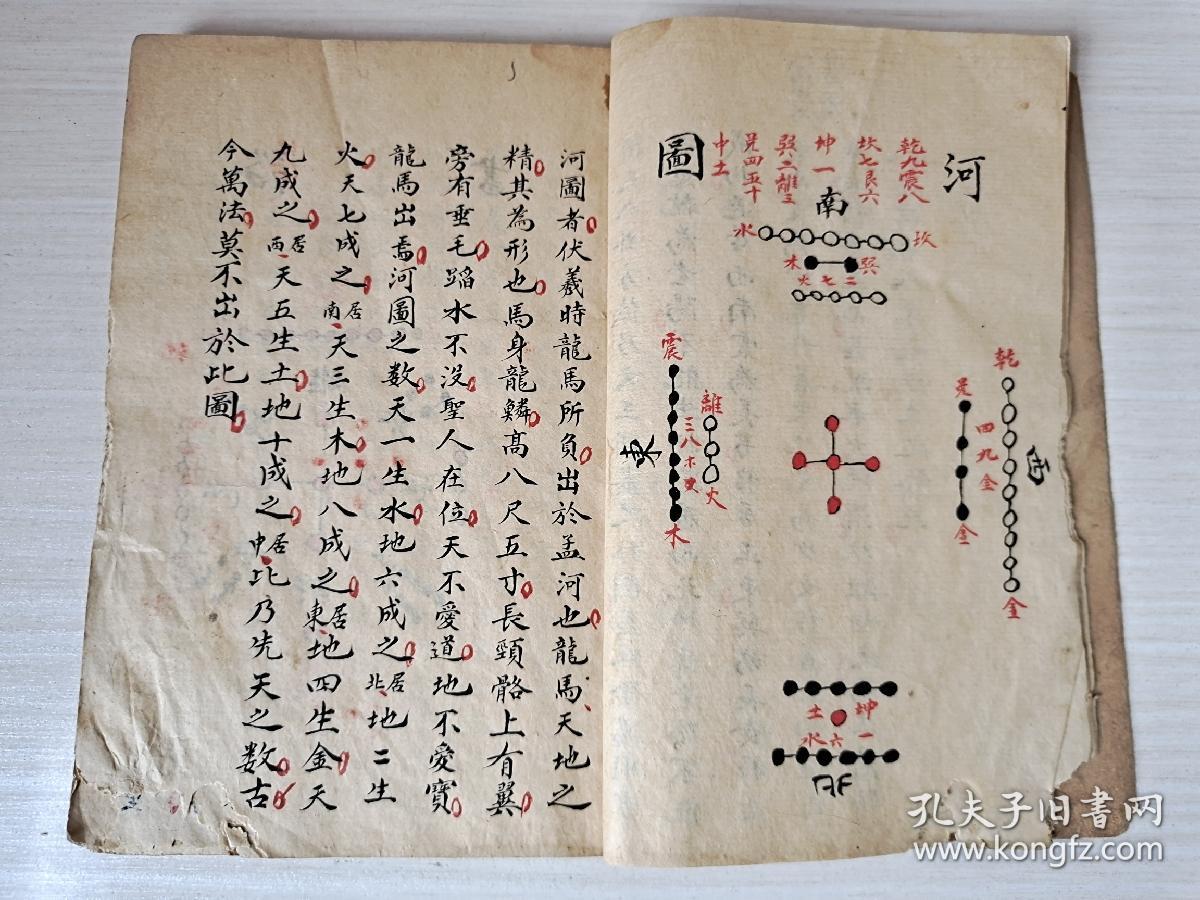 河
圖
乾九震八
坎七艮六
坤一
巽二離三
兌四五十
中土
南
水
坎
木
巽
火七二
震
離
東
三八木
火
木
乾
兌
四九金
西
金
金
土
坤
水六一
北
河圖者伏羲時龍馬所負出於孟河也龍馬天地之
精其為形也馬身龍鱗高八尺五寸長頸骼上有翼
旁有垂毛蹈水不沒聖人在位天不愛道地不愛寶
龍馬出焉河圖之数天一生水地六成之居北地二生
火天七成之居南天三生木地八成之居東地四生金天
九成之居西天五生土地十成之居中此乃先天之数古
今萬法莫不出於此圖
孔夫子旧书网
www.kongfz.com